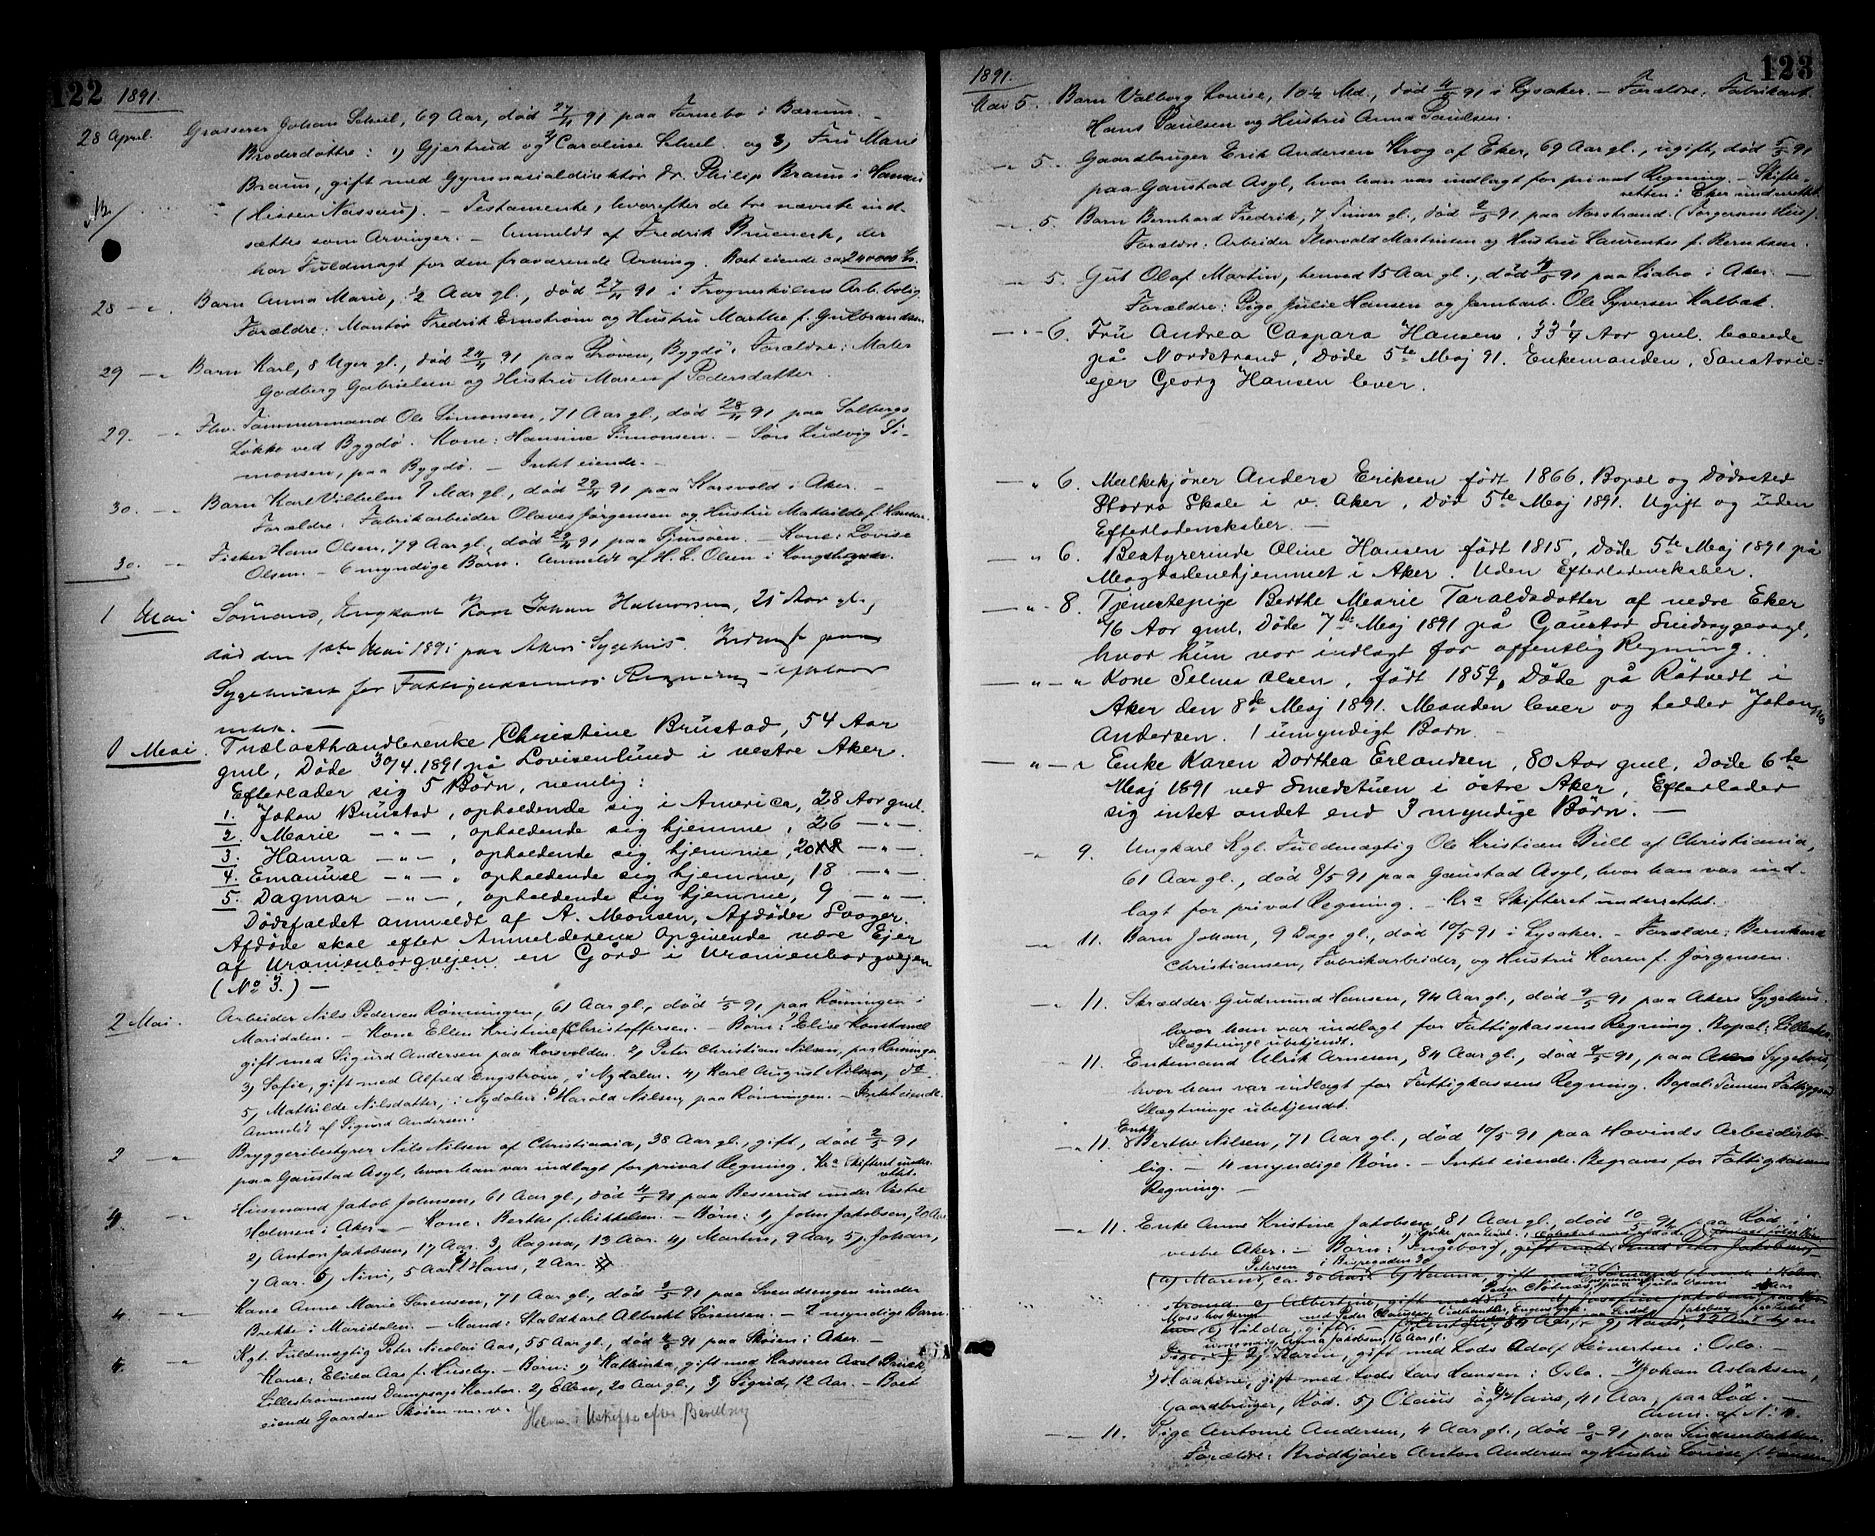 122 1891.
28 April. Grosserer Johan Schul, 69 Aar, død 27/4 91 paa Fornebo i Bærum. -
Broderdøttre: 1) Gjertrud og 2) Caroline og 3) Fru Marie
Braun, gift med Gymnasialdirektør dr. Philip Braun i Hanau
(Hessen Nassau). - Testamente, hvorefter de tre nævnte ind-
sættes som Arvinger. - Anmeldt af Fredrik der
har Fuldmagt for den fraværende Arving. Boet eiende ca 240000 Kr.
28 - " . Barn Anna Marie, 1/2 Aar gl., død 27/4 91 i Frognerkilens Arb.bolig
Forældre: Montør Fredrik Ernstrøm og Hustru Marthe f. Gulbrandsen
29 - " Barn Karl, 8 Uger gl., død 24/4 91 paa Prøven, Bygdø. Forældre: Maler
Godberg Gabrielsen og Hustru Maren f. Pedersdatter.
29. - " Fhv. Tømmermand Ole Simonsen, 71 Aar gl., død 28/4 91 paa Solbergs
Løkke ved Bygdø. Kone: Hansine Simonsen. - Søn Ludvig Si-
monsen, paa Bygdø. - Intet eiende. -
30. - " Barn Karl Vilhelm 7 Mdr gl., død 29/4 91 paa Korsvold i Aker. -
Forældre: Fabrikarbeider Olaves Jørgensen og Hustru Mathilde f. Hansen.
30. - " Fisker Hans Olsen, 79 Aar gl., død 29/4 91 paa Sjursøen. - Kone: Lovise
Olsen. - 6 myndige Børn. Anmeldt af H. L. Olsen i Kongshavn.
1 Mai Sømand, Ungkarl Karl Johan Halvorsen, 25 Aar gl.,
død den 1ste Mai 1891 paa Akers Sygehus. Indlagt paa
Sygehuset for Fattigvæsenets Regning - efterlader
intet. -
1 Mai. Trælasthandlerenke Christine Brustad, 54 Aar
gml, Døde 30/4.1891 på Lovisenlund i vestre Aker.
Efterlader sig 5 Børn, nemlig:
1. Johan Brustad, opholdende sig i America, 28 Aar gml.
2. Marie - " -, opholdende sig hjemme, 26 - " -
3. Hanna - " -, opholdende sig hjemme, 20 - " -
4. Emanuel - " -, opholdende sig hjemme, 18 - " -
5. Dagmar - " -, opholdende sig hjemme, 9 - " -
Dødsfaldet anmeldt af A. Monsen, Afdødes Svoger.
Afdøde skal efter Anmelderens Opgivende være Ejer
af Uranienborgvejen en Gård i Uranienborgvejen
(No 3.) -
2 Mai. Arbeider Nils Pedersen Rønningen, 61 Aar gl., død 1/5 91 paa Rønningen i
Maridalen. - Kone Ellen Kristine f. Christoffersen. - Børn: 1) Elise Konstance
gift med Sigurd Andersen paa Korsvolden. 2) Peter Christian Nilsen, paa Rønningen
3) Sofie, gift med Alfred Engstrøm, i Nydalen. 4) Karl August Nilsen, do
5) Mathilde Nilsdatter, i Nydalen 6) Harald Nilsen, paa Rønningen. - Intet eiende.
Anmeldt af Sigurd Andersen.
2 - " Bryggeribestyrer Nils Nilsen af Christiania, 38 Aar gl., gift, død 2/5 91
paa Gaustad Asyl, hvor han var indlagt for privat Regning. Kra Skifteret under-
rettet.
4. - " Husmand Jakob Johnsen, 61 Aar gl., død 4/5 91 paa Besserud under Vestre
Holmen i Aker. - Kone: Berthe f. Mikkelsen. - Børn: 1) John Jakobsen, 20 Aar
2) Anton Jakobsen, 17 Aar. 3) Ragna, 13 Aar. 4) Martin, 9 Aar, 5) Johan,
7 Aar. 6) Nini, 5 Aar 7) Hans, 2 Aar.
4 - " Kone Anne Marie Sørensen, 71 Aar gl., død 3/5 91 paa Svendsengen under
Brekke i Maridalen. - Mand: Staldkarl Albrekt Sørensen. - 2 myndige Børn.
4. - " Kgl. Fuldmægtig Peter Nicolai Aas, 55 Aar gl., død 4/5 91 paa Skøien i Aker. -
Kone: Elida Aas f. Huseby. - Børn: 1) Kathinka, gift med Kasserer Axel
Lillestrømmens Dampsags Kontor. 2) Ellen, 20 Aar gl., 3) Sigrid, 12 Aar. - Boet
eiende Gaarden Skøien m. v. Hens. i Uskifte efter Bevilling
1891. 123
Mai 5. Barn Valborg Louise, 10 1/2 Md., død 4/5 91 i Lysaker. - Forældre: Fabrikarb.
Hans Paulsen og Hustru Anna Paulsen.
- " 5. Gaardbruger Erik Andersen Krog af Eker, 69 Aar gl., ugift, død 5/5 91
paa Gaustad Asyl, hvor han var indlagt for privat Regning. - Skifte-
retten i Eker underrettet.
- " 5. Barn Bernhard Fredrik, 7 Timer gl., død 2/5 91 paa Norstrand. (Torgersens Hus).
Forældre: Arbeider Thorvald Martinsen og Hustru Laurentse f. Berntsen.
- " 5. Gut Olaf Martin, henved 15 Aar gl., død 4/5 91 paa Liabro i Aker. -
Forældre: Pige Julie Hansen og Jernbarb. Ole Syversen Kalbak.
- " - 6. Fru Andrea Caspara Hansen, 33 1/4 Aar gml. boende
på Nordstrand, Døde 5te Maj 91. Enkemanden, Sanatorie-
ejer Georg Hansen lever.
- " 6. Melkekjører Anders Eriksen født 1866, Bopæl og Dødssted
Større Skole i v. Aker, Død 5te Maj 1891. Ugift og uden
Efterladenskaber. -
- " 6. Bestyrerinde Oline Hansen født 1815, Døde 5te Maj 1891 på
Magdalenehjemmet i Aker. Uden Efterladenskaber.
- " - 8. Tjenestepige Berthe Marie Taraldsdatter af nedre Eker
46 Aar gml. Døde 7de Maj 1891 på Gaustad Sindssygeasyl,
hvor hun var indlagt for offentlig Regning.
- " - " Kone Selma Olsen, født 1857, Døde på Råtvedt i
Aker den 8de Maj 1891. Manden lever og hedder Johan
Andersen. 1 umyndigt Barn. -
- " - " Enke Karen Dorthea Erlandsen, 80 Aar gml, Døde 6te
Maj 1891 ved Smedstuen i østre Aker, Efterlader
sig intet andet end 3 myndige Børn. -
- " 9. Ungkarl Kgl. Fuldmægtig Ole Kristian Bull af Christiania,
61 Aar gl., død 8/5 91 paa Gaustad Asyl, hvor han var ind-
lagt for privat Regning. - Kra Skifteret underrettet.
- " 11. Barn Johan, 9 Dage gl., død 10/5 91 i Lysaker. - Forældre: Bernhard
Christiansen, Fabrikarbeider, og Hustru Karen f. Jørgensen.
- " 11. Skrædder Gudmund Hansen, 94 Aar gl., død 9/5 91 paa Akers Sygehus
hvor han var indlagt for Fattigkassens Regning. Bopæl: Lilleaker.
Slægtninge ubekjendt.
- " 11. Enkemand Ulrik Arnesen, 84 Aar gl., død 9/5 91, paa Akers Sygehus,
hvor han var indlagt for Fattigkassens Regning. Bopæl: Tonsen Fattiggaard
Slægtninge ubekjendt.
- " 11. Enke Berthe Nilsen, 71 Aar gl., død 10/5 91 paa Hovinds Arbeiderbo-
lig. - 4 myndige Børn. - Intet eiende. Begraves for Fattigkassens
Regning. -
- " 11. Enke Anne Kristine Jakobsen, 81 Aar gl., død 10/5 91 paa Rød i
vestre Aker. - Børn: 1) Ingeborg, gift med Smed Peter Jakobsen,
(a) Maren, ca. 30 Aar b) Hanna, gift med Sømand
c) Albertine, gift med d) Josefine Jakobsen, paa
e) Hilda, gift
Pige. 2) Karen, gift med Lods Adolf Reinertsen i Oslo. -
3) Haakine, gift med Lods Lars Hansen i Oslo. - 4) Johan Aslaksen,
Gaardbruger, Rød. 5) Olaus og 6) Hans, 41 Aar, paa Rød. -
Anm. af No 4.
- " - 11. Pige Antonie Andersen, 4 Aar gl., død 9/5 91 paa Sinsenbakken.
Forældre: Brødkjører Anton Andersen og Hustru Louise f. Hansen